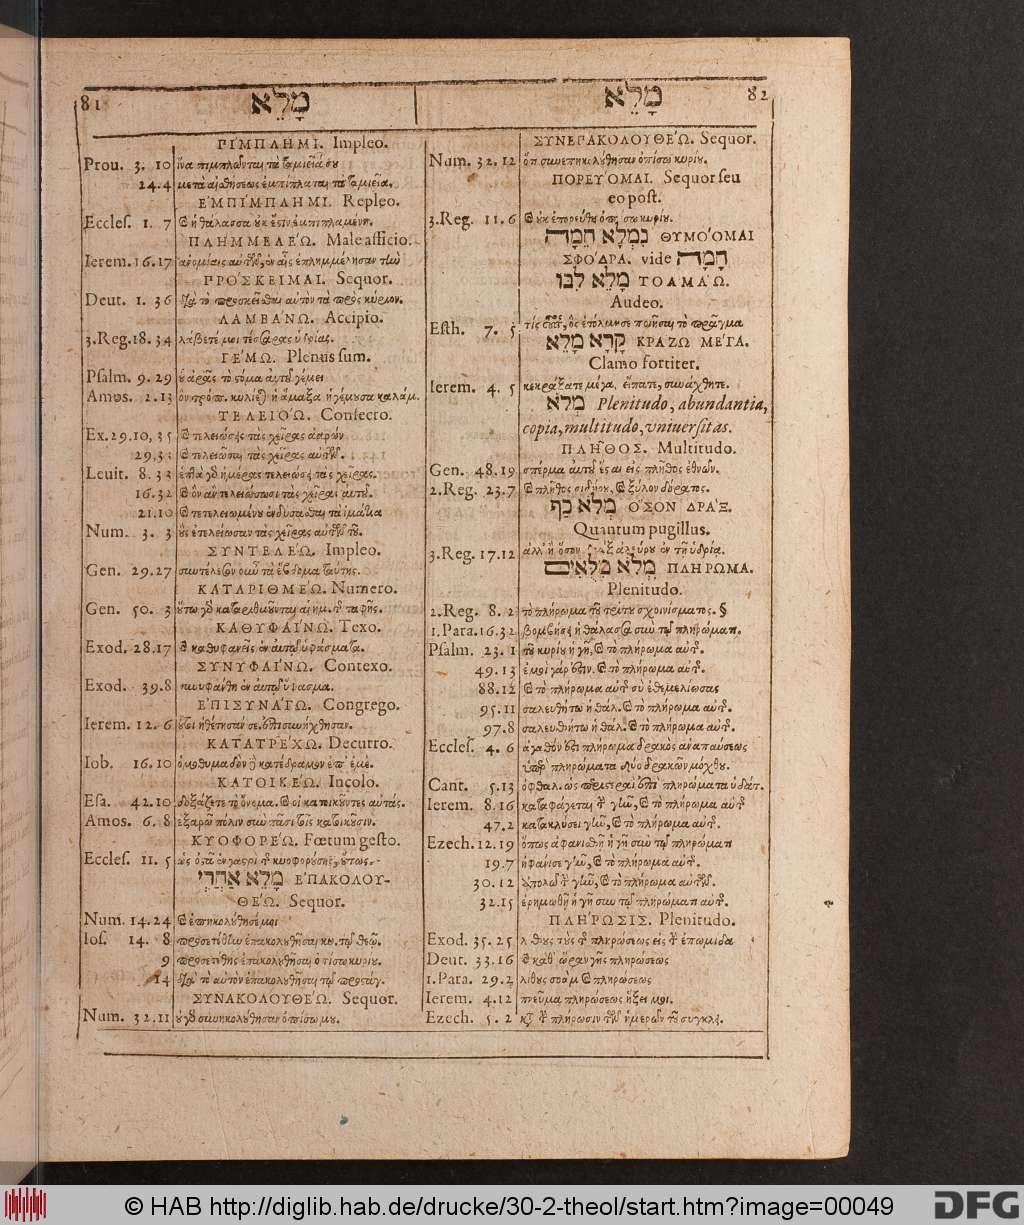 81 מָלֵא
ΠΙΜΠΛΗΜΙ. Impleo.
Prou. 3. 10 ἵνα πιμπλῶνται τὰ ταμιεῖά σου
24.4 μετὰ αἰσθήσεως ἐμπίπλαται τὰ ταμιεῖα.
ἘΜΠΊΜΠΛΗΜΙ. Repleo.
Eccles. 1. 7 καὶ ἡ θάλασσα οὐκ ἔστιν ἐμπιπλαμένη.
ΠΛΗΜΜΕΛΈΩ. Male afficio.
Ierem. 16.17 ἀνομίαις αὐτῶν, ἐν αἷς ἐπλημμέλησαν
ΠΡΌΣΚΕΙΜΑΙ. Sequor.
Deut. 1. 36 διὰ τὸ προσκεῖσθαι αὐτὸν τὰ πρὸς κύριον.
ΛΑΜΒΆΝΩ. Accipio.
3.Reg. 18. 34 λάβετέ μοι τέσσαρας ὑδρίας.
ΓΈΜΩ. Plenus sum.
Psalm. 9. 29 οὗ ἀρᾶς τὸ στόμα αὐτοῦ γέμει
Amos. 2.13 ὃν τρόπ. κυλίεται ἡ ἅμαξα ἡ γέμουσα καλάμ.
ΤΕΛΕΙΌΩ. Consecro.
Ex.29.10, 35 καὶ τελειώσεις τὰς χεῖρας ἀαρών
29,33 καὶ τελειῶσαι τὰς χεῖρας αὐτῶν.
Leuit. 8. 33 ἑπτὰ γὸ ἡμέρας τελειώσει τὰς χεῖρας.
16.32 καὶ ὃν ἂν τελειώσωσι τὰς χεῖρας αὐτοῦ.
21.10 καὶ τετελειωμένου ἐνδύσασθαι τὰ ἱμάτια
Num. 3. 3 οὓς ἐτελείωσαν τὰς χεῖρας αὐτῶν
ΣΥΝΤΕΛΈΩ. Impleo.
Gen. 29.27 συντέλεσον οὖν τὰ ἕβδομα ταύτης.
ΚΑΤΑΡΙΘΜΈΩ. Numero.
Gen. 50. 3 οὕτω γὸ καταριθμοῦνται αἱ ἡμ. τῆς ταφῆς.
ΚΑΘΥΦΑΊΝΩ. Texo.
Exod. 28.17 καὶ καθυφανεῖς ἐν αὐτῷ ὕφασμα
ΣΥΝΥΦΑΊΝΩ. Contexo.
Exod. 39.8 συνυφάνθη ἐν αὐτῷ ὕφασμα.
ἘΠΙΣΥΝΆΓΩ. Congrego.
Ierem. 12. 6 καὶ ἠθέτησάν σε, ἐπισυνήχθησαν.
ΚΑΤΑΤΡΈΧΩ. Decurro.
Iob. 16.10 ὁμοθυμαδὸν κατέδραμον ἐπ᾽ ἐμέ.
ΚΑΤΟΙΚΈΩ. Incolo.
Esa. 42.10 δοξάζετε τὸ ὄνομα. καὶ οἱ κατοικοῦντες αὐτάς.
Amos. 6. 8 ἐξαρῶ πόλιν σὺν πᾶσι τοῖς κατοικοῦσιν.
ΚΥΟΦΟΡΈΩ. Fœtum gesto.
Eccles. 11. 5 ὡς ὀστᾶ ἐν γαστρὶ τῆς κυοφορούσης, οὕτως.
מָלֵא אַחֲרֵי ἘΠΑΚΟΛΟΥ-
ΘΈΩ. Sequor.
Num. 14.24 καὶ ἐπηκολούθησέ μοι
Ios. 14. 8 προσετέθην ἐπακολουθῆσαι κυ. τῷ θεῷ.
9 προσετέθης ἐπακολουθῆσαι ὀπίσω κυρίου.
14 διὰ τὸ αὐτὸν ἐπακολουθῆσαι τῷ προστάγ.
ΣΥΝΑΚΟΛΟΥΘΈΩ. Sequor.
Num. 32.11 οὐ γὸ συνηκολούθησαν ὀπίσω μου.
מָלֵא 82
ΣΥΝΕΠΑΚΟΛΟΥΘΈΩ. Sequor.
Num. 32.12 ὅτι συνεπηκολούθησαν ὀπίσω κυρίου.
ΠΟΡΕΎΟΜΑΙ. Sequor seu
eo post.
3.Reg. 11.6 καὶ οὐκ ἐπορεύθη ὀπίσω κυρίου.
נִמְלָא חֵמָה ΘΥΜΌΟΜΑΙ
ΣΦΌΔΡΑ. vide חֵמָה
מָלֵא לִבּוֹ ΤΟΛΜΆΩ.
Audeo.
Esth. 7. 5 τίς οὗτος, ὃς ἐτόλμησε ποιῆσαι τὸ πρᾶγμα
קָרָא מָלֵא ΚΡΑΖΩ ΜΕΓΑ.
Clamo fortiter.
Ierem. 4. 5 κεκράξατε μέγα, εἴπατε, συνάχθητε.
מְלֹא Plenitudo, abundantia,
copia, multitudo, vniuersitas.
ΠΛΗ͂ΘΟΣ. Multitudo.
Gen. 48.19 σπέρμα αὐτοῦ ἔσται εἰς πλῆθος ἐθνῶν.
2.Reg. 23.7 καὶ πλῆθος σιδήρου, καὶ ξύλον δόρατος.
מְלֹא כַף ὍΣΟΝ ΔΡᾺΞ.
Quantum pugillus.
3.Reg. 17.12 ἀλλ᾽ ἢ ὅσον δρὰξ ἀλεύρου ἐν τῇ ὑδρίᾳ.
מְלֹא מְלֹאִים ΠΛΗΡΩΜΑ.
Plenitudo.
2.Reg. 8. 2 τὸ πλήρωμα τοῦ τρίτου σχοινίσματος. §
1.Para. 16.32 βομβήσει ἡ θάλασσα σὺν τῷ πληρώματι.
Psalm. 23. 1 τοῦ κυρίου ἡ γῆ, καὶ τὸ πλήρωμα αὐτῆς.
49.13 ἐμοὶ γάρ ἐστιν. καὶ τὸ πλήρωμα αὐτῆς.
88.12 καὶ τὸ πλήρωμα αὐτῆς σὺ ἐθεμελίωσας
95.11 σαλευθήτω ἡ θάλ. καὶ τὸ πλήρωμα αὐτῆς.
97.8 σαλευθήτω ἡ θάλ. καὶ τὸ πλήρωμα αὐτῆς.
Eccles. 4. 6 ἀγαθόν ἐστι πλήρωμα δρακὸς ἀναπαύσεως
ὑπὲρ πληρώματα δύο δρακῶν μόχθου.
Cant. 5.13 ὀφθαλ. ὡς περιστεραὶ ἐπὶ πληρώματα ὑδάτ.
Ierem. 8.16 καταφάγεται τὴν γῆν, καὶ τὸ πλήρωμα αὐτῆς
47.2 κατακλύσει γῆν, καὶ τὸ πλήρωμα αὐτῆς.
Ezech. 12.19 ὅπως ἀφανισθῇ ἡ γῆ σὺν τῷ πληρώματι
19.7 ἠφάνισε γῆν, καὶ τὸ πλήρωμα αὐτῆς.
30.12 ἀπολῶ τὴν γῆν, καὶ τὸ πλήρωμα αὐτῶν.
32.15 ἐρημωθῇ ἡ γῆ σὺν τῷ πληρώματι αὐτῆς.
ΠΛΉΡΩΣΙΣ. Plenitudo.
Exod. 35.25 λίθους τοὺς τῆς πληρώσεως εἰς τὴν ἐπωμίδα
Deut. 33.16 καὶ καθ᾽ ὥραν γῆς πληρώσεως
1.Para. 29.2 λίθους σοὰμ καὶ πληρώσεως
Ierem. 4.12 πνεῦμα πληρώσεως ἥξει μοι.
Ezech. 5. 2 κατὰ τὴν πλήρωσιν τῶν ἡμερῶν τοῦ συγκλ.
© HAB http://diglib.hab.de/drucke/30-2-theol/start.htm?image=00049
DFG